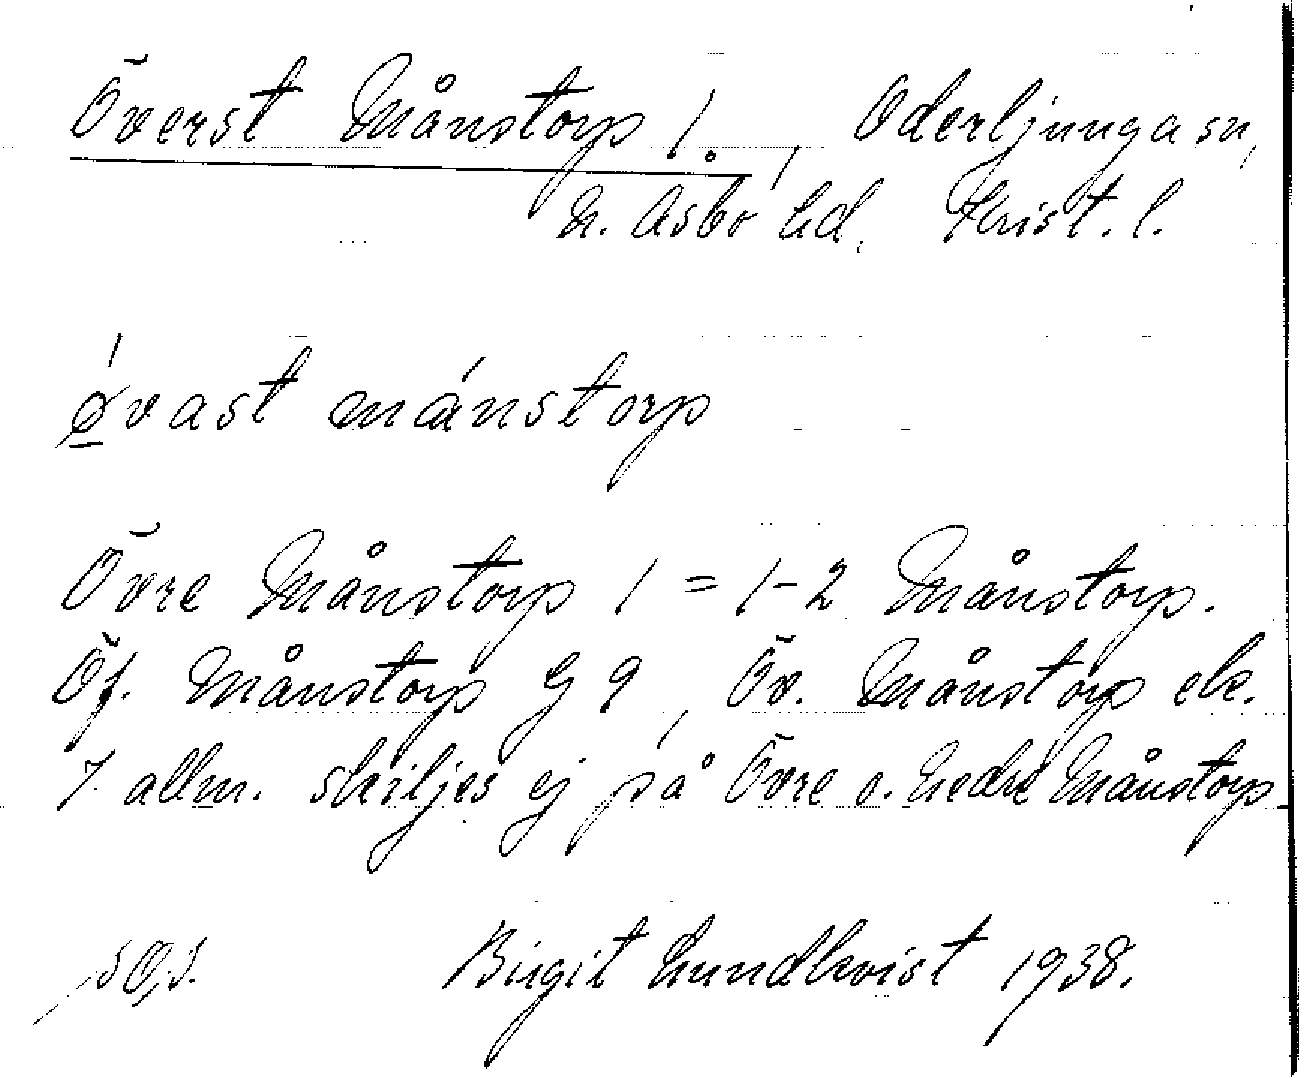 Överst Månstorp 1., Oderljunga sn,
N. Åsbo hd. Krist. l.
øvast mánstorp
Övre Månstorp 1 = 1-2 Månstorp.
Öf. Månstorp G 9, Öv. Månstorp ek.
I allm. skiljes ej på Övre o. Nedre Månstorp
Birgit Lundkvist 1938.